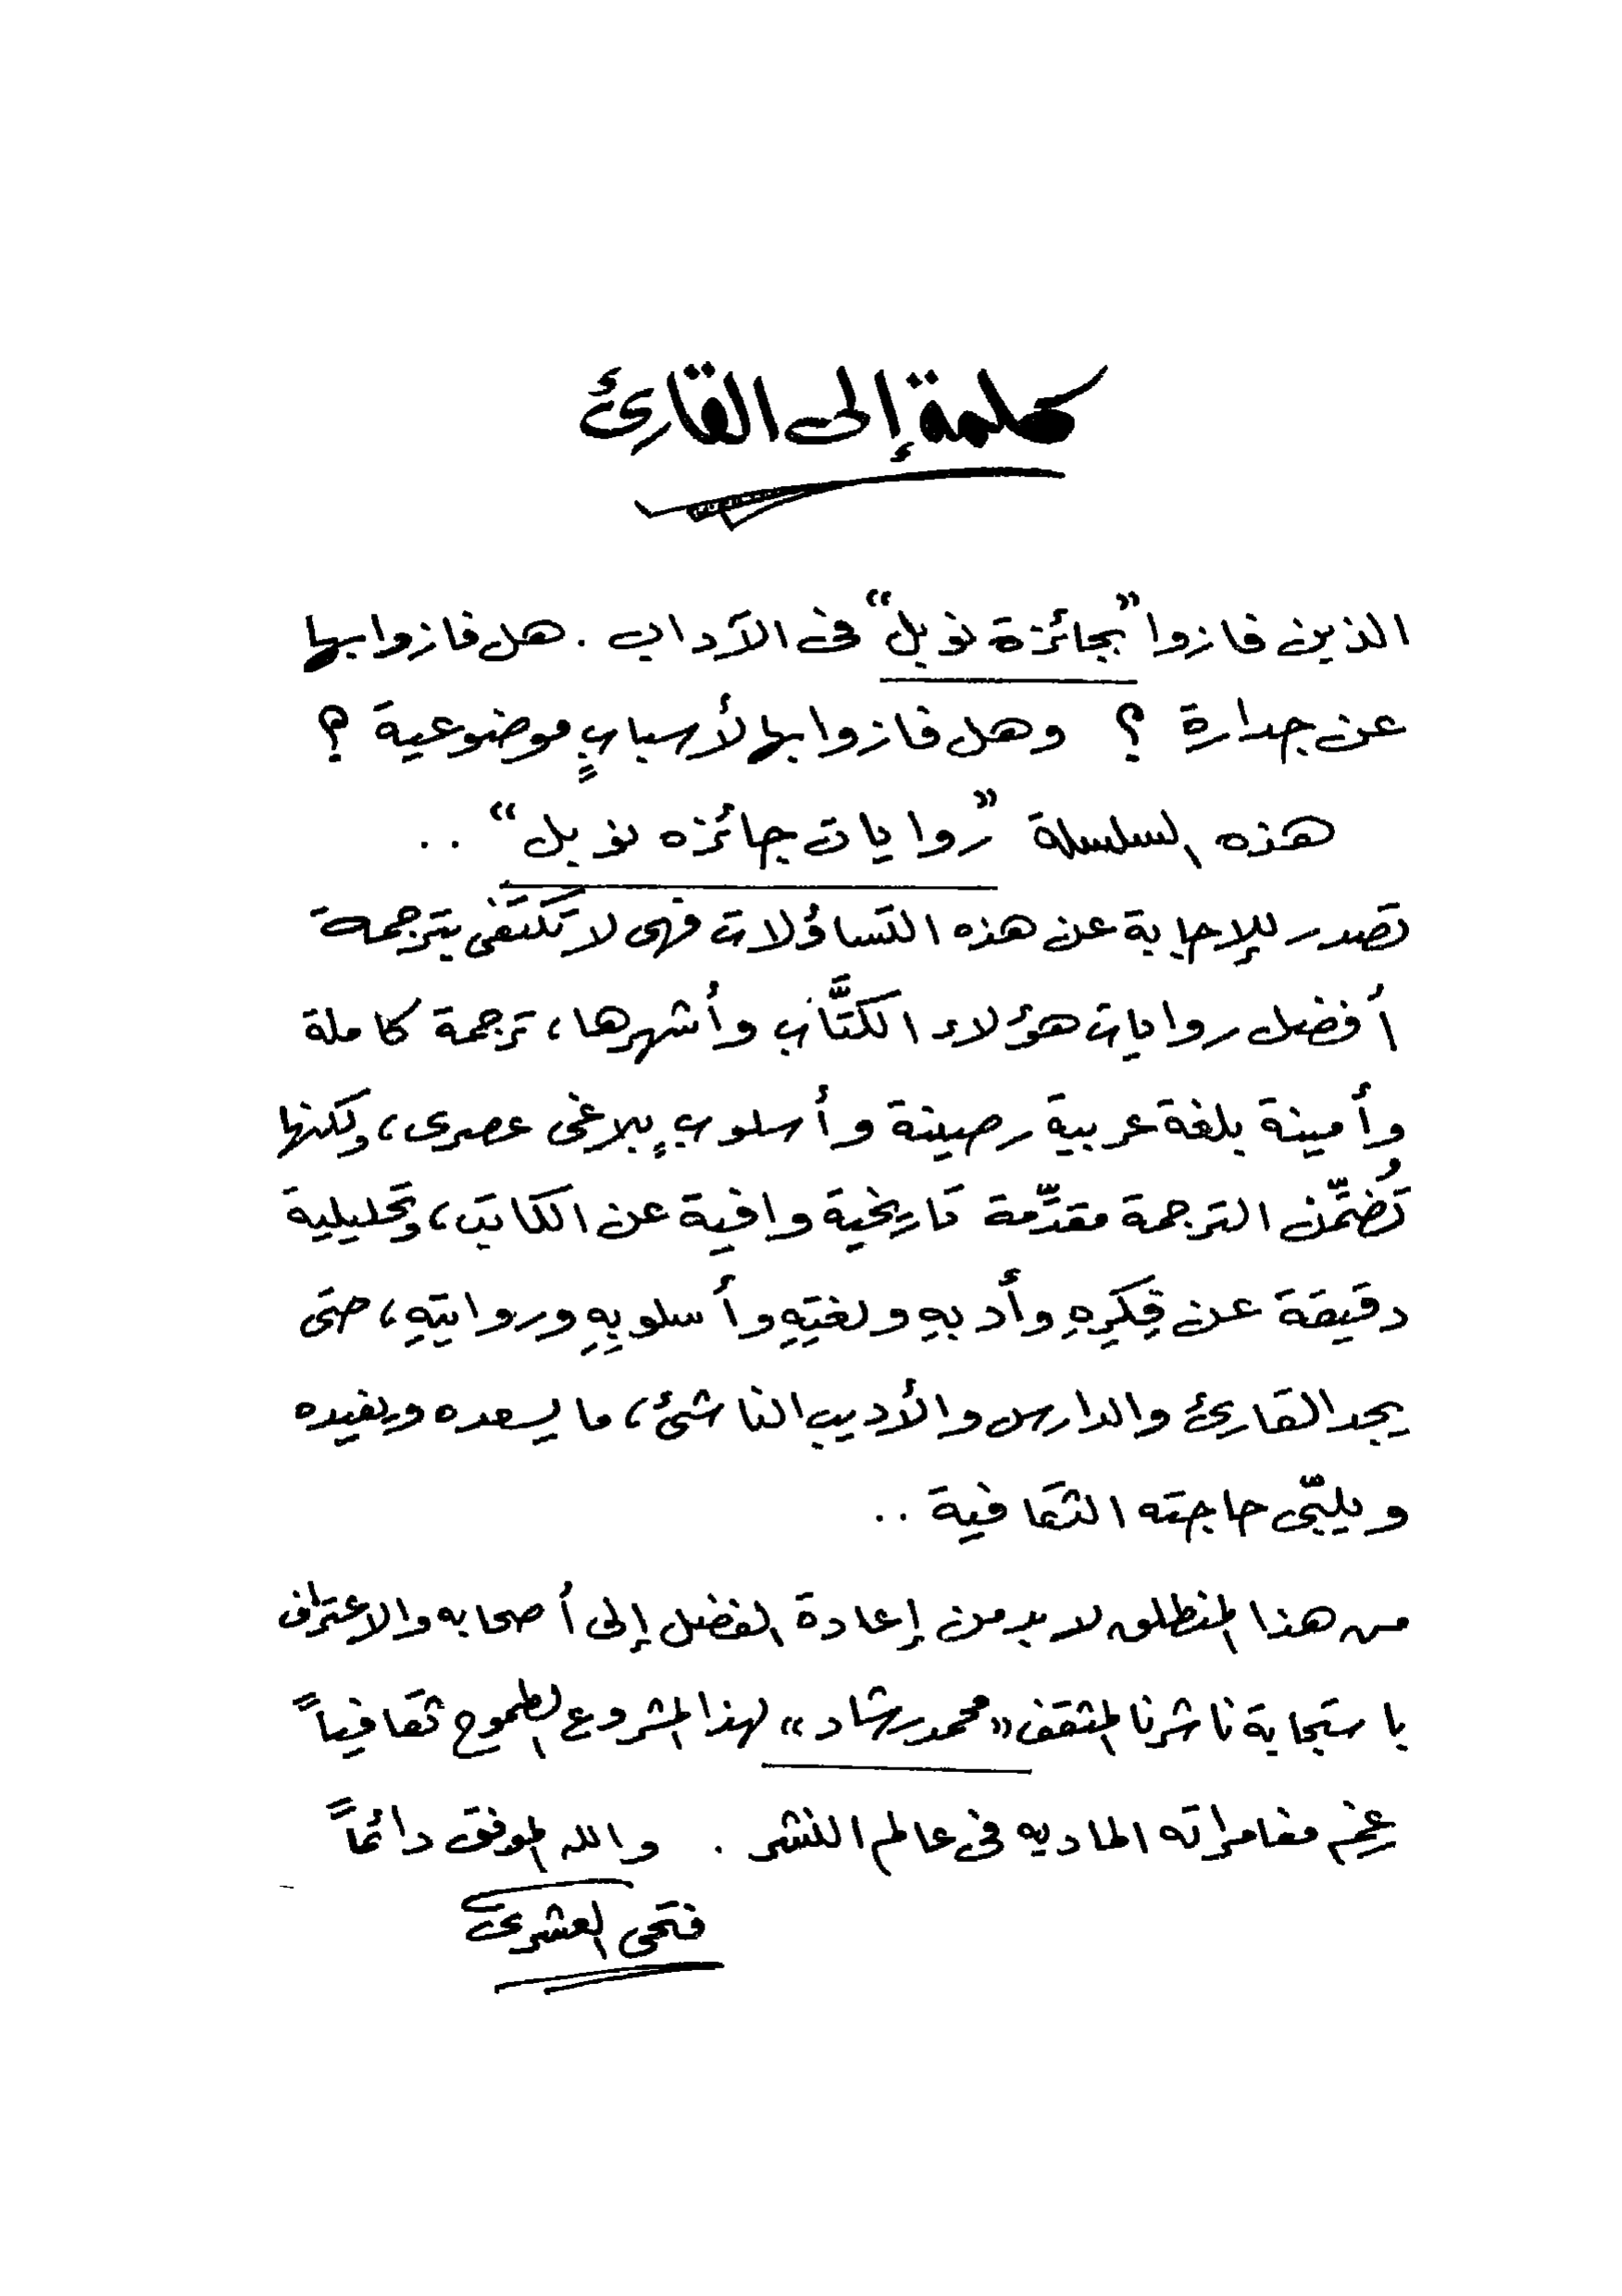 كلمة إلى القارئ
الذين فازوا "بجائزة نوبل" فى الآداب . هل فازوا بها
عن جدارة ؟ وهل فازوا بها لأسبابٍ موضوعية ؟
هذه السلسلة "روايات جائزه نوبل" ..
تصدر للإجابة عن هذه التساؤلات فهى لا تكتفى بترجمة
أفضل روايات هؤلاء الكتَّاب وأشهرها، ترجمة كاملة
وأمينة بلغة عربية رصينة وأسلوبٍ بلاغى عصرى، ولكنها
تُضمّن الترجمة مقدّمة تاريخية وافية عن الكاتب، وتحليلية
دقيقة عن فِكَرِهِ وأدبهِ ولغتِهِ وأسلوبِهِ وروايتِهِ، حتى
يجد القارئ والدارس والأديب الناشئ، ما يسعده ويفيده
ويلبّى حاجته الثقافية ..
من هذا المنطلق لا بد من إعادة الفضل إلى أصحابه والاعتراف
باستجابة ناشرنا المثقف «محمد رشاد» لهذا المشروع الطموح ثقافياً
رغم مغامراته الماديه فى عالم النشر . والله الموفق دائماً
فتحى العشرى